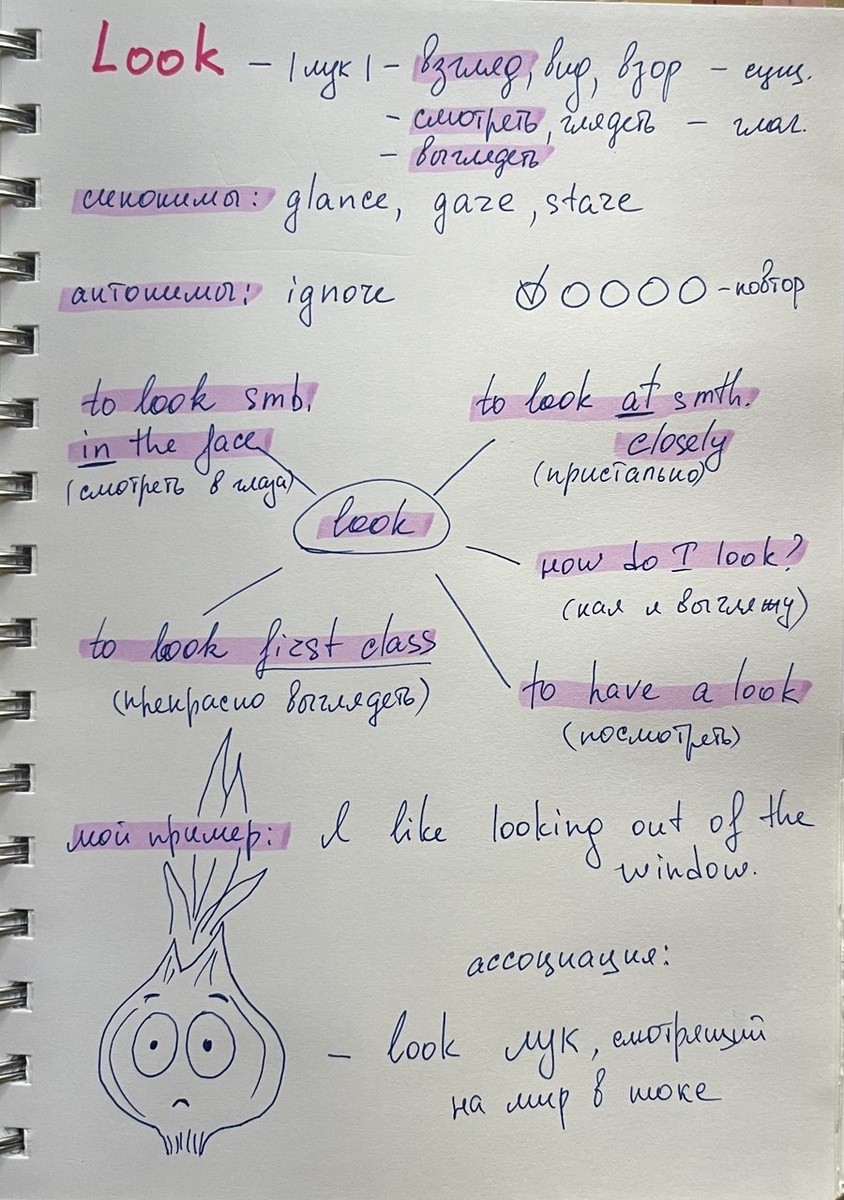 Look – |лук| – взгляд, вид, взор – сущ.
– смотреть, глядеть – глаг.
– выглядеть
синонимы: glance, gaze, stare
антонимы: ignore
– повтор
to look smb.
in the face
(смотреть в глаза)
to look at smth.
closely
(пристально)
look
how do I look?
(как я выгляжу)
to look first class
(прекрасно выглядеть)
to have a look
(посмотреть)
мой пример: I like looking out of the
window.
ассоциация:
– look лук, смотрящий
на мир в шоке